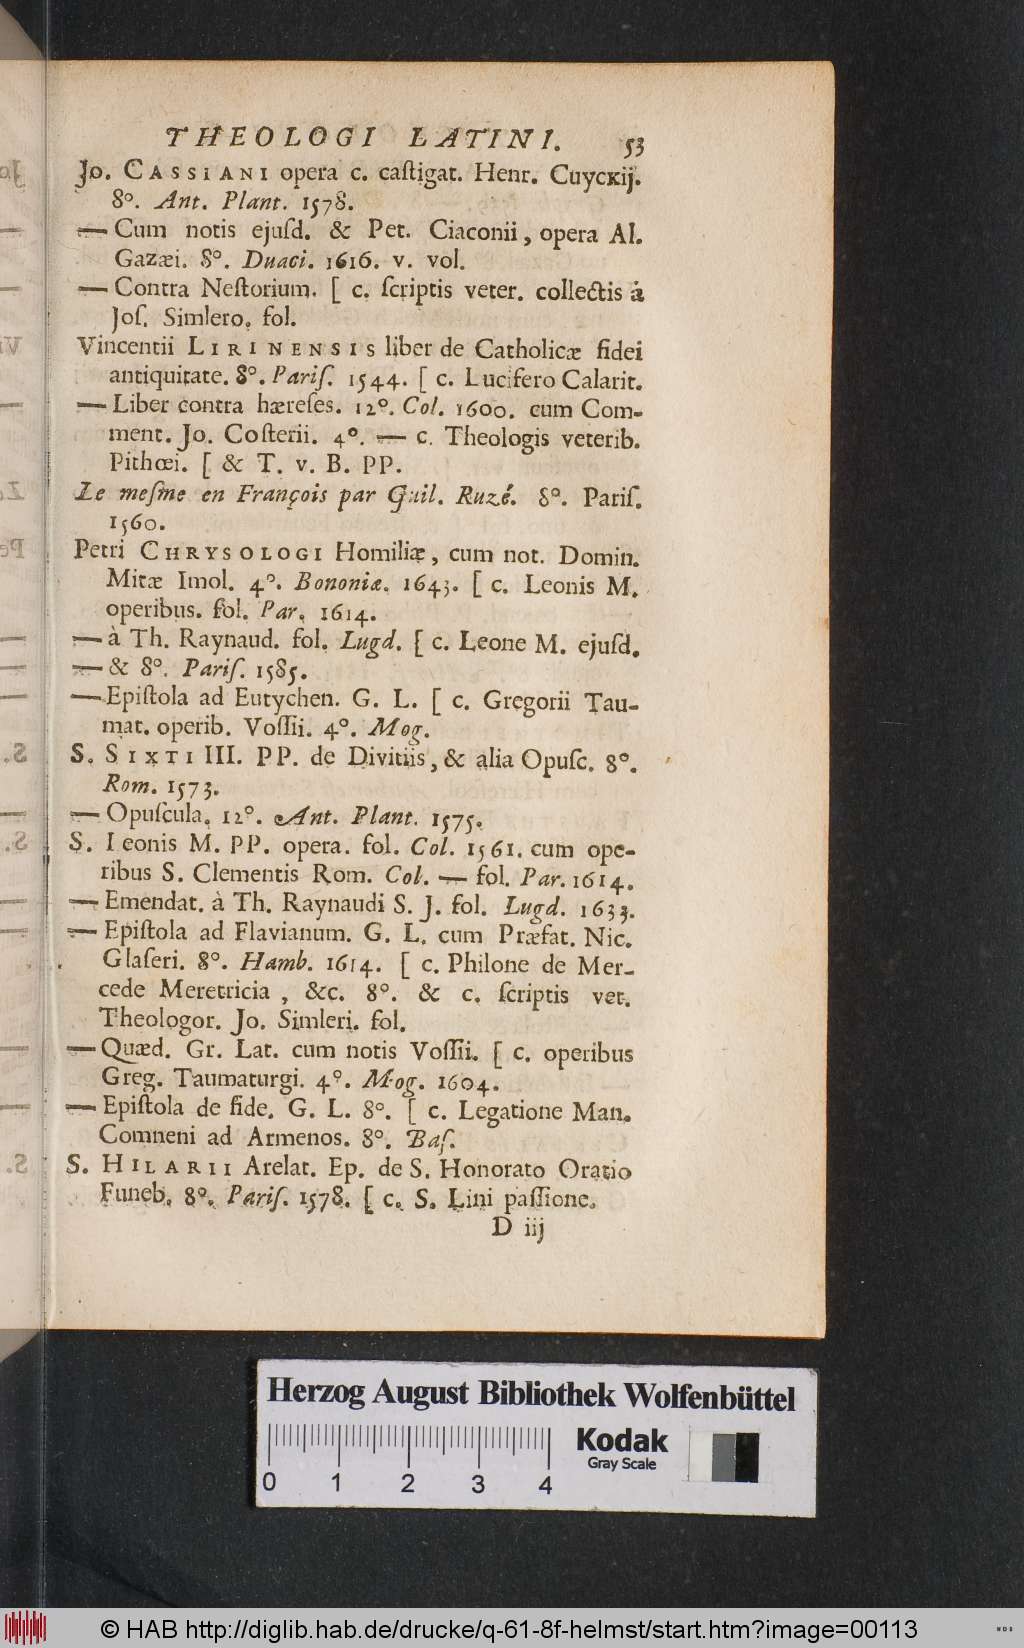 THEOLOGI LATINI. 53
Jo. CASSIANI opera c. castigat. Henr. Cuyckij.
8°. Ant. Plant. 1578.
— Cum notis ejusd. & Pet. Ciaconii, opera Al.
Gazæi. 8°. Duaci. 1616. v. vol.
— Contra Nestorium. [ c. scriptis veter. collectis à
Jos. Simlero. fol.
Vincentii LIRINENSIS liber de Catholicæ fidei
antiquitate. 8°. Paris. 1544. [ c. Lucifero Calarit.
— Liber contra hæreses. 12°. Col. 1600. cum Com-
ment. Jo. Costerii. 4°. — c. Theologis veterib.
Pithœi. [ & T. v. B. PP.
Le mesme en François par Guil. Ruzé. 8°. Paris.
1560.
Petri CHRYSOLOGI Homiliæ, cum not. Domin.
Mitæ Imol. 4°. Bononiæ. 1643. [ c. Leonis M.
operibus. fol. Par. 1614.
— à Th. Raynaud. fol. Lugd. [ c. Leone M. ejusd.
— & 8°. Paris. 1585.
— Epistola ad Eutychen. G. L. [ c. Gregorii Tau-
mat. operib. Vossii. 4°. Mog.
S. SIXTI III. PP. de Divitiis, & alia Opusc. 8°.
Rom. 1573.
— Opuscula. 12°. Ant. Plant. 1575.
S. Leonis M. PP. opera. fol. Col. 1561. cum ope-
ribus S. Clementis Rom. Col. — fol. Par. 1614.
— Emendat. à Th. Raynaudi S. J. fol. Lugd. 1633.
— Epistola ad Flavianum. G. L. cum Præfat. Nic.
Glaseri. 8°. Hamb. 1614. [ c. Philone de Mer-
cede Meretricia, &c. 8°. & c. scriptis vet.
Theologor. Jo. Simleri. fol.
— Quæd. Gr. Lat. cum notis Vossii. [ c. operibus
Greg. Taumaturgi. 4°. Mog. 1604.
— Epistola de fide. G. L. 8°. [ c. Legatione Man.
Comneni ad Armenos. 8°. Bas.
S. HILARII Arelat. Ep. de S. Honorato Oratio
Funeb. 8°. Paris. 1578. [ c. S. Lini passione.
D iij
Herzog August Bibliothek Wolfenbüttel
Kodak
Gray Scale
0 1 2 3 4
© HAB http://diglib.hab.de/drucke/q-61-8f-helmst/start.htm?image=00113